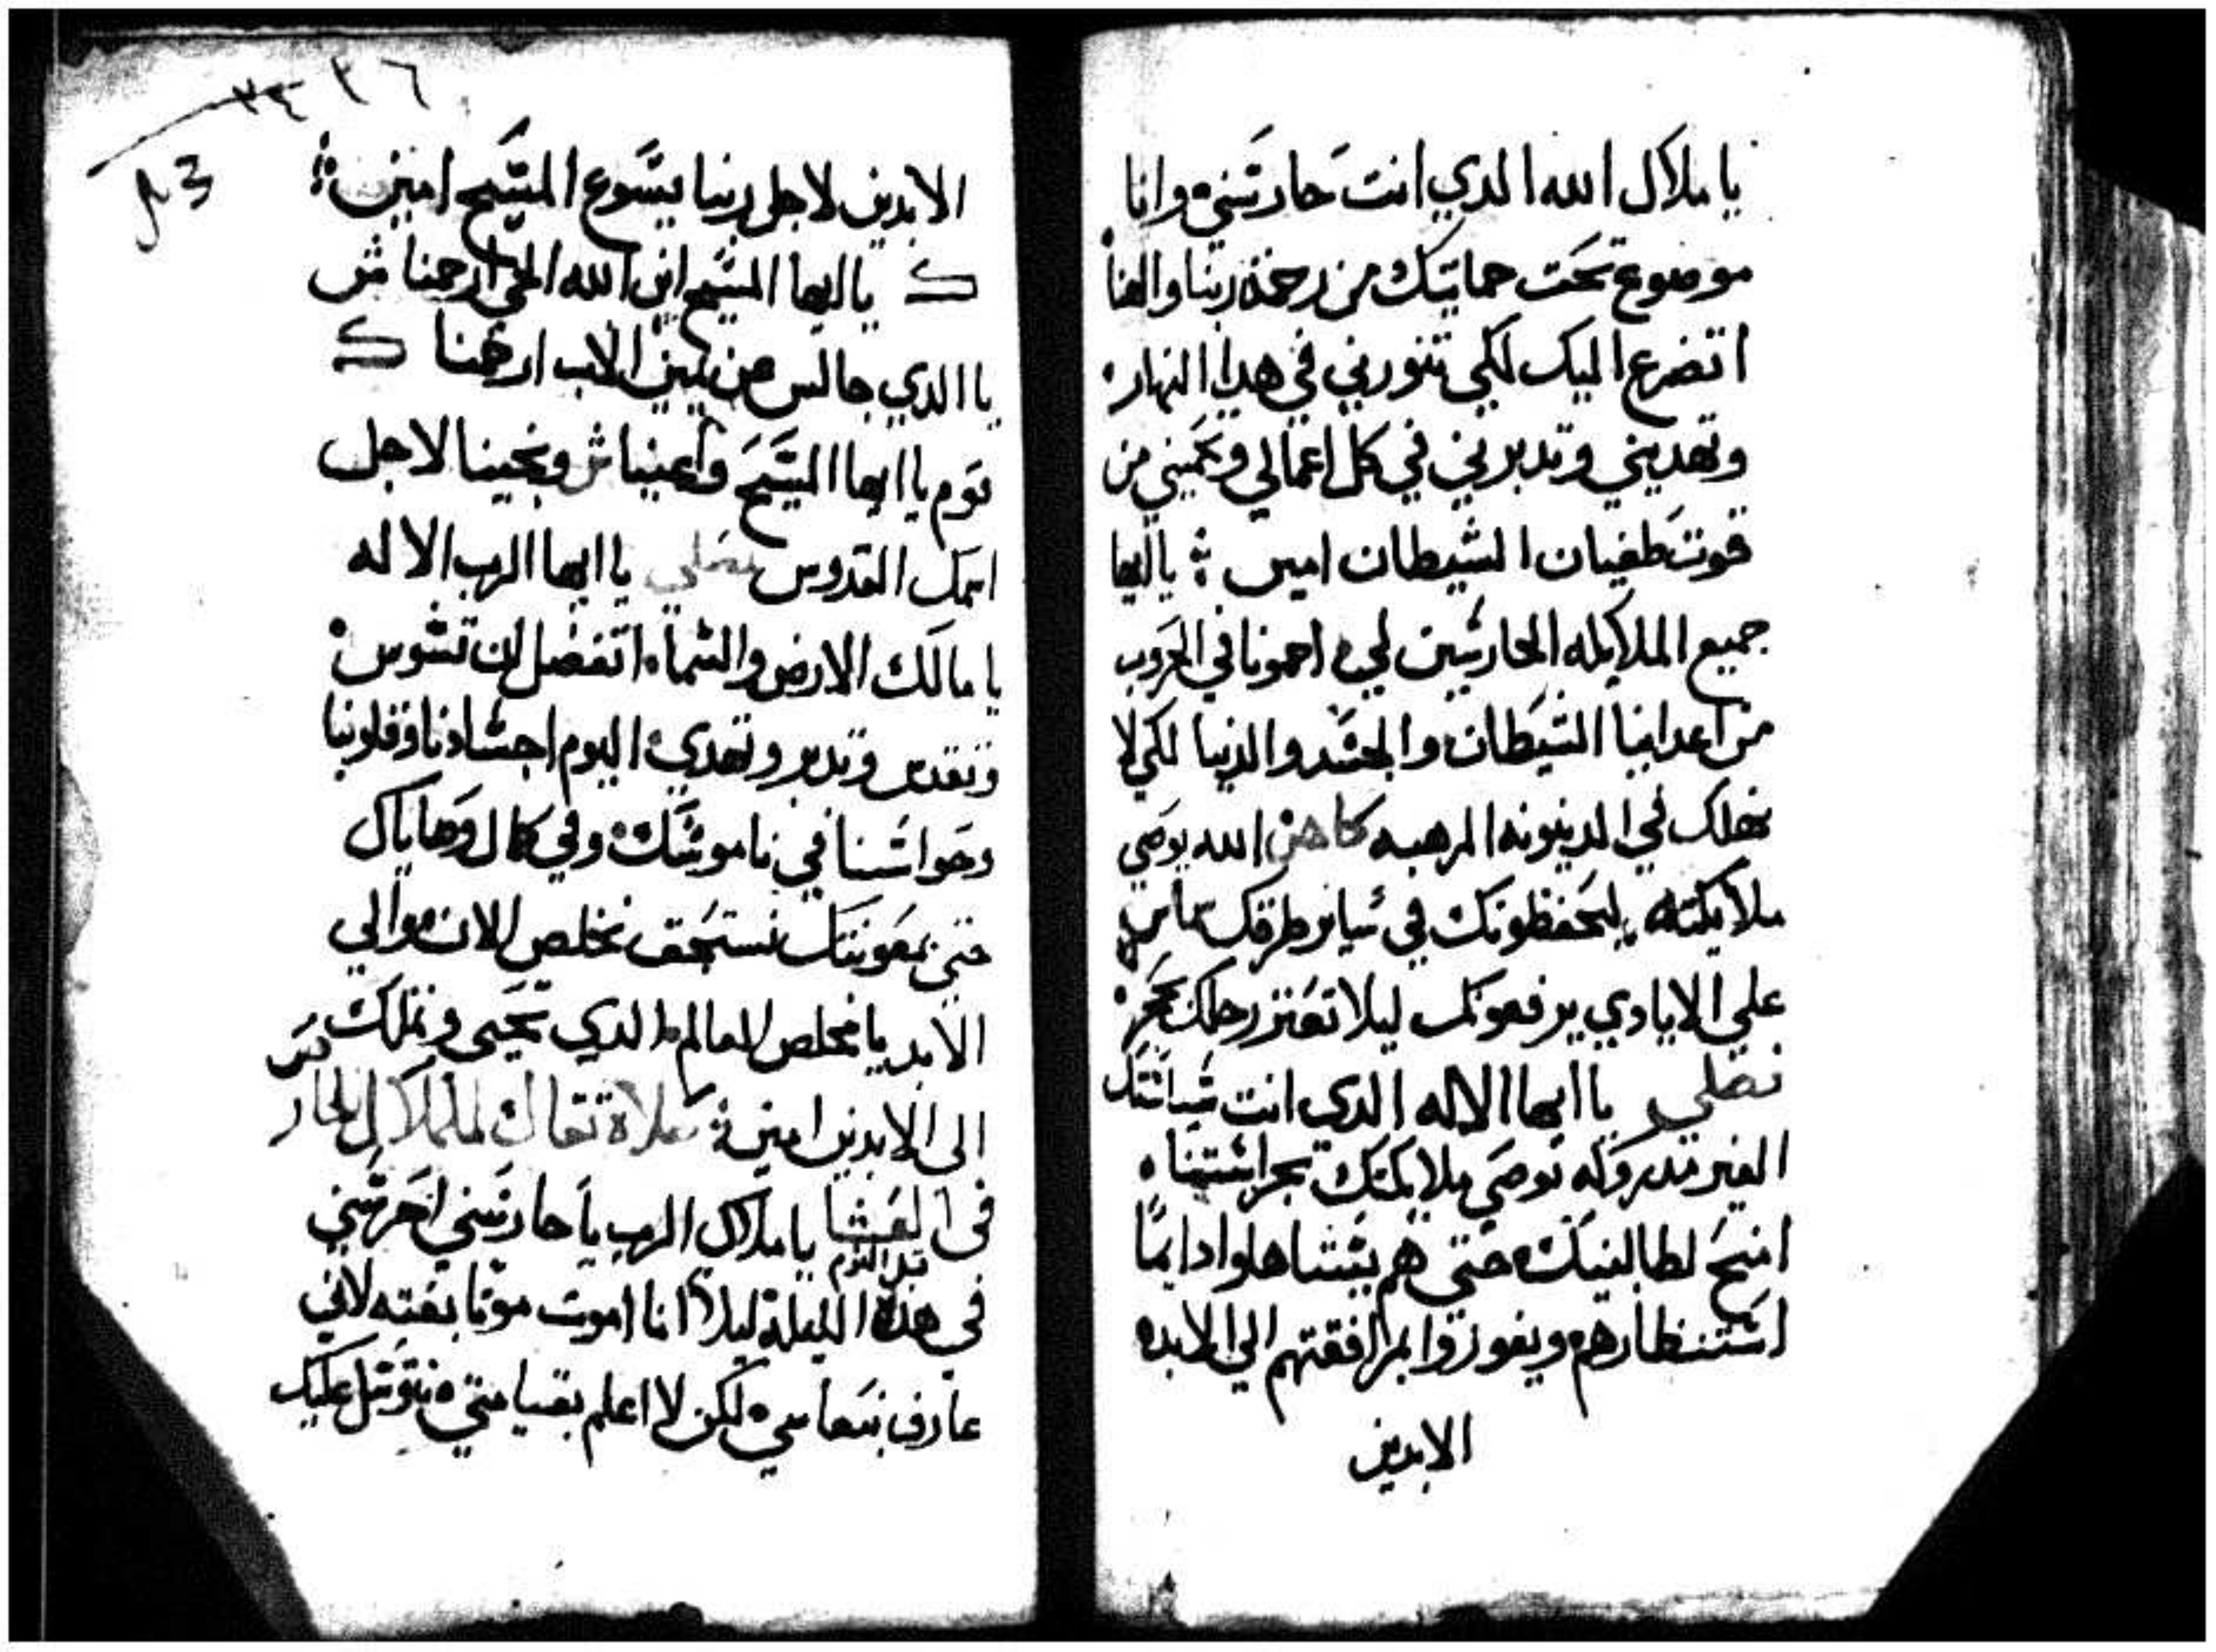 يا ملاك الله الدي انت حارسني وانا
موضوع تحت حمايتك من رحمة ربنا والهنا
اتضرع اليك لكي تنورني في هدا النهار
وتهديني وتدبرني في كل اعمالي وتحميني من
قوت طغيان الشيطان امين يا ايها
جميع الملايكه الحارسين لي احمونا في الحروب
من اعداينا الشيطان والجسد والدنيا لكي لا
نهلك في الدينونه المرهبه كاهن الله يوصي
ملايكته ليحفظونك في ساير طرقك شماس
علي الايادي يرفعونك ليلا تعتر رجلك بحجر
نصلي يا ايها الاله الدي انت سياستك
الغير مدروكه توصي ملايكتك بحراستنا
امنح لطالبينك حتي هم يستاهلوا دايما
استنظارهم ويفوزوا بمرافقتهم الي الابد
الابدين
٣٤ ٣٦
43
الابدين لاجل ربنا يسوع المسيح امين
ك يا ايها المسيح ابن الله الحي ارحمنا ش
يا الدي جالس من يمين الاب ارحمنا ك
قوم يا ايها المسيح واعيننا ش ونجينا لاجل
اسمك القدوس نصلي يا ايها الرب الاله
يا مالك الارض والسماء اتفضل لان تسوس
وتقدس وتدبر وتهدي اليوم اجسادنا وقلوبنا
وحواسنا في ناموسك وفي كمال وصاياك
حتي بمعونتك نستحق نخلص الان والي
الابد يا مخلص العالم الدي تحيي وتملك
الى الابدين امين صلاة تقال لملاك الحارس
في العشا قبل النوم يا ملاك الرب يا حارسني احرسني
في هده الليلة ليلا انا اموت موتا بغته لاني
عارف بنعاسي لكن لا اعلم بقيامتي نتوسل عليك